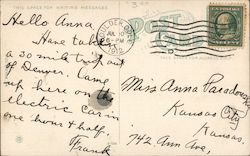 THIS SPACE FOR WRITING MESSAGES
Hello Anna
Have taken
a 30 mile trip out
of Denver. Came
up here on the
electric car in
one hour & half.
Frank
BOULDER, COLO.
JUL 10
6-PM
1912
POST
Miss Anna
Kansas City
Kansas,
742 Ann Ave,